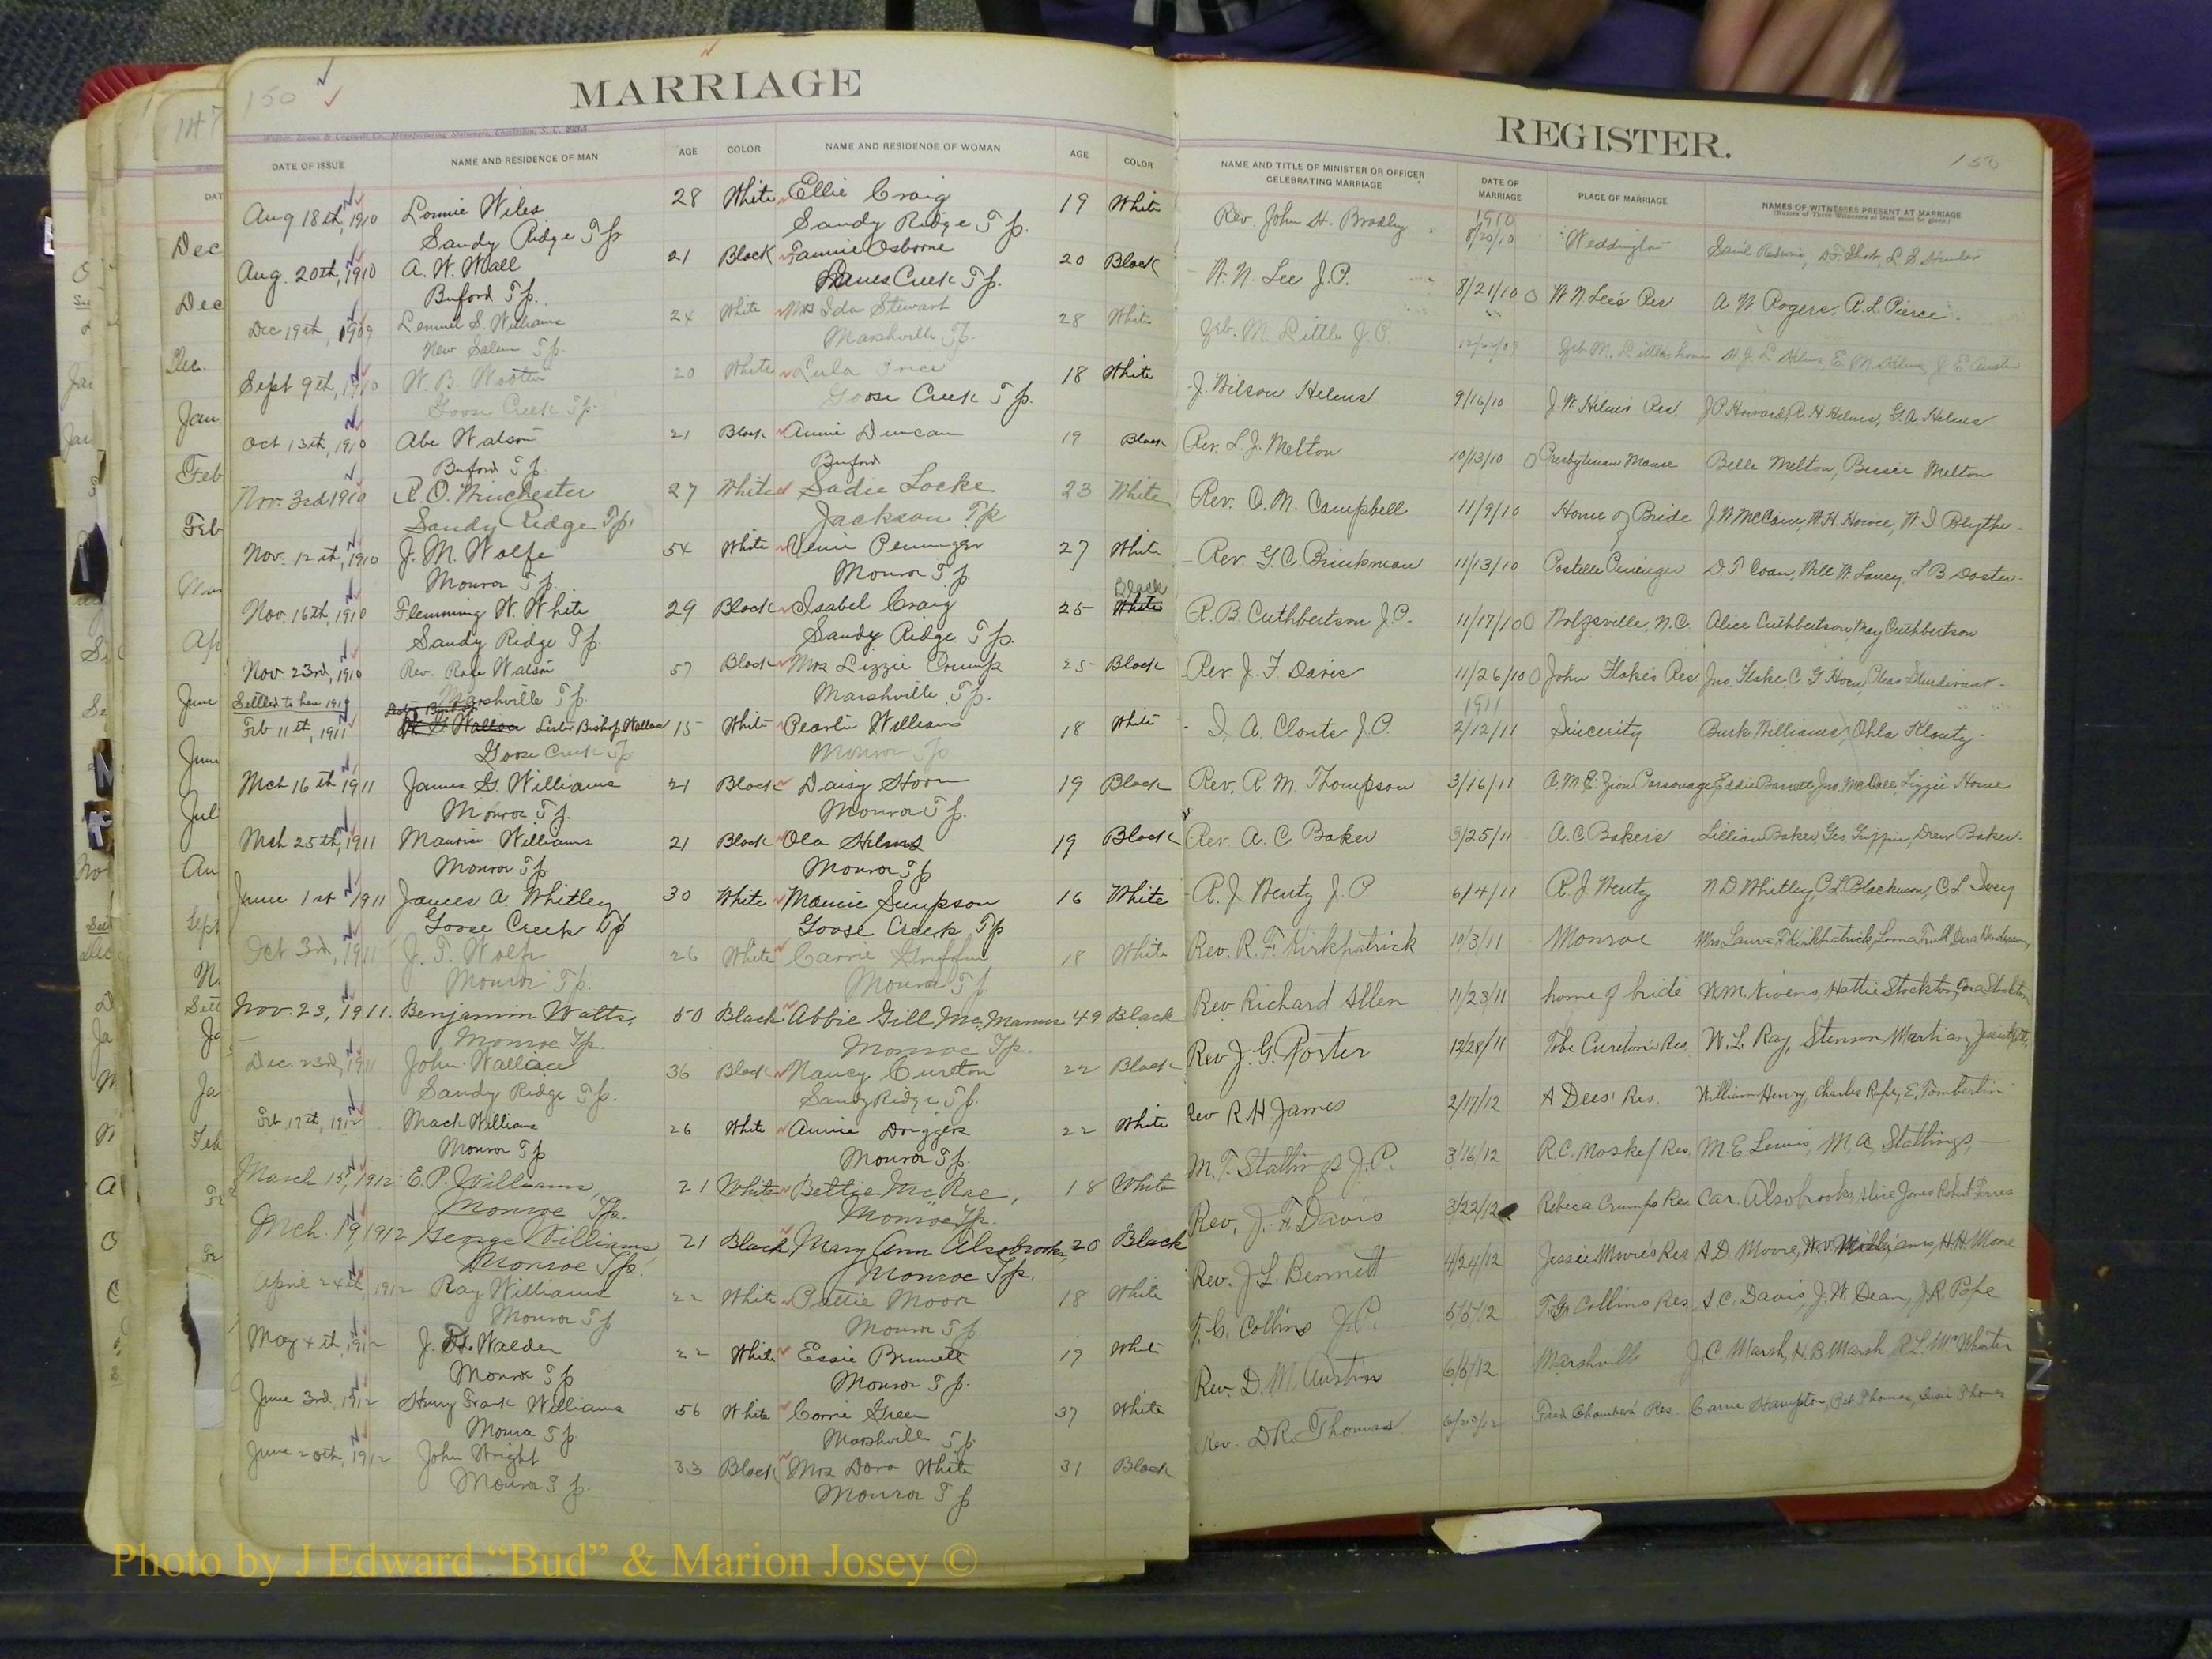 150
MARRIAGE
Walker, Evans & Cogswell Co., Manufacturing Stationers, Charleston, S. C.
DATE OF ISSUE NAME AND RESIDENCE OF MAN AGE COLOR NAME AND RESIDENCE OF WOMAN AGE COLOR
Aug 18th, 1910 Lonnie Wiles 28 White Ellie Craig 19 White
Sandy Ridge Tp. Sandy Ridge Tp.
Aug. 20th, 1910 A. W. Wall 21 Black Fannie Osborne 20 Black
Buford Tp. Lanes Creek Tp.
Dec 19th, 1909 Lemuel S. Williams 24 White Mrs Ida Stewart 28 White
New Salem Tp. Marshville Tp.
Sept 9th, 1910 W. B. Wooten 20 White Lula Price 18 White
Goose Creek Tp. Goose Creek Tp.
Oct 13th, 1910 Abe Watson 21 Black Annie Duncan 19 Black
Buford Tp. Buford
Nov. 3rd 1910 R. O. Winchester 27 White Sadie Locke 23 White
Sandy Ridge Tp. Jackson Tp
Nov. 12th, 1910 J. M. Wolfe 54 White Peninger 27 White
Monroe Tp. Monroe Tp.
Black
Nov. 16th, 1910 Flemming W. White 29 Black Isabel Craig 25 White
Sandy Ridge Tp. Sandy Ridge Tp.
Nov. 23rd, 1910 Rev. Rafe Watson 57 Black Mrs Lizzie Crump 25 Black
Marshville Tp. Marshville Tp.
Settled to here
Feb 11th, 1911 Lester Bishop Wallace 15 White Pearlie Williams 18 White
Goose Creek Tp Monroe Tp
Mch 16th 1911 James G. Williams 21 Black Daisy Horn 19 Black
Monroe Tp. Monroe Tp.
Mch 25th, 1911 Maurice Williams 21 Black Ola Helms 19 Black
Monroe Tp Monroe Tp
June 1st 1911 James A. Whitley 30 White Mamie Simpson 16 White
Goose Creek Tp Goose Creek Tp
Oct 3rd, 1911 J. T. Wolfe 26 White Carrie Griffin 18 White
Monroe Tp. Monroe Tp.
Nov. 23, 1911. Benjamin Watts, 50 Black Abbie Gill McManus 49 Black
Monroe Tp. Monroe Tp.
Dec. 23rd, 1911 John Wallace 36 Black Nancy Cureton 22 Black
Sandy Ridge Tp. Sandy Ridge Tp.
Feb 17th, 1912 Mack Williams 26 White Annie Driggers 22 White
Monroe Tp Monroe Tp.
March 15, 1912 E. P. Williams, 21 White Bettie McRae, 18 White
Monroe Tp. Monroe Tp.
Mch. 19, 1912 George Williams 21 Black Mary Ann Alsobrooks, 20 Black
Monroe Tp. Monroe Tp.
April 24th, 1912 Ray Williams 22 White Pattie Moore 18 White
Monroe Tp Monroe Tp.
May 4th, 1912 J. Walden 22 White Essie Brunett White
Monroe Tp Monroe Tp.
June 3rd, 1912 Henry Frank Williams 56 White Corrie Green 37 White
Monroe Tp. Marshville Tp.
June 20th, 1912 John Wright 33 Black Mrs Dora White 31 Black
Monroe Tp. Monroe Tp
REGISTER.
150
NAME AND TITLE OF MINISTER OR OFFICER CELEBRATING MARRIAGE DATE OF MARRIAGE PLACE OF MARRIAGE NAMES OF WITNESSES PRESENT AT MARRIAGE
(Names of Three Witnesses at least must be given)
1910
Rev. John H. Bradley 8/20/10 Weddington
W. N. Lee J.P. 8/21/10 W N Lee's Res A. W. Rogers, R. L. Pierce.
Zeb. M. Little J.P. 12/22/09 Zeb M. Little's home
J. Wilson Helms 9/16/10 J. W. Helms Res J. P. Howard, R. H. Helms, G. A. Helms
Rev. L. J. Melton 10/13/10 Presbyterian Manse Belle Melton, Bessie Melton
Rev. C. M. Campbell 11/9/10 Home of Bride J. N. McCain, W. H. Howie, W. I. Blythe
Rev. G. C. Brinkman 11/13/10 Costelle Peninger D. T. Coan, Will W. Laney, L B Doster
R. B. Cuthbertson J.P. 11/17/10 Wolfsville, N.C. Alice Cuthbertson May Cuthbertson
Rev J. F. Davis 11/26/10 John Flake's Res Jno. Flake, C. G. Horn, Cleas Sturdivant
1911
I. A. Clontz J.P. 2/12/11 Sincerity Burk Williams, Ohla Klonty
Rev. R. M. Thompson 3/16/11 A. M. E. Zion Parsonage Eddie Barrett, Jno. McCall, Lizzie Horne
Rev. A. C. Baker 3/25/11 A. C Baker's Lillian Baker, Geo. Griffin, Drew Baker.
R. J. Wentz J. P 6/4/11 R. J. Wentz N. D Whitley, C L Blackmon, C L Ivey
Rev. R. F. Kirkpatrick 10/3/11 Monroe Mrs. Laura F. Kirkpatrick,
Rev Richard Allen 11/23/11 home of bride W. M. Nivens, Hattie Stockton, Cora Stockton
Rev J. G. Porter 12/28/11 Tobe Cureton's Res. W. L. Ray, Stenson Martian,
Rev R. H James 2/17/12 A Dees' Res. William Henry, Charles Rape, E. Tomberlin
M. T. Stallings J.P. 3/16/12 R. C. Res. M. E Lewis, M. A. Stallings,
Rev, J. F. Davis 3/22/12 Rebeca Crump's Res Car. Alsobrooks, Jones Robert
Rev. J. L. Bennett 4/24/12 Jessie Moore's Res A. D. Moore, Williams, H. H. Moore
T. C. Collins J.P. 5/5/12 Collins Res, A. C. Davis, J. W. Dean, J. R. Pope
Rev. D. M. Austin 6/5/12 Marshville J. C Marsh, H. B. Marsh R L McWhirter
Rev. D R. Thomas 6/20/12 Fred Chambers' Res. Carrie Hampton, Thomas, Susie Thomas
Photo by J Edward “Bud” & Marion Josey ©